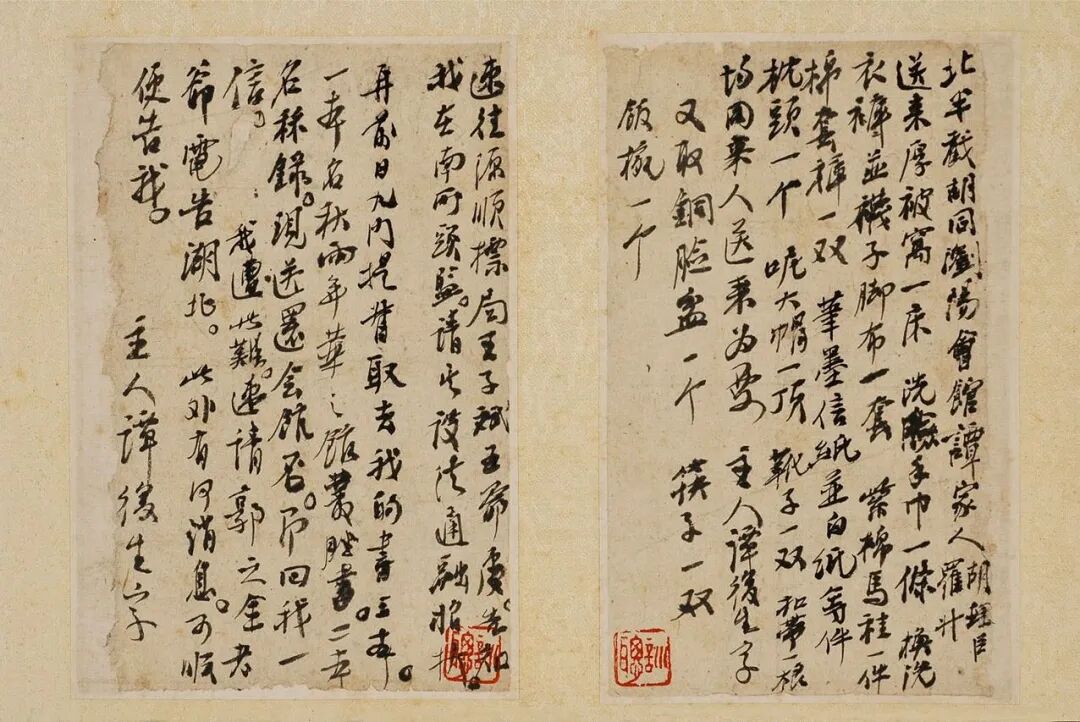 北半截胡同瀏陽會館譚家人胡理臣羅升
送来厚被窩一床 洗臉手巾一條 換洗
衣褲並襪子脚布一套 紫棉馬褂一件
棉套褲一双 筆墨信紙並白紙等件
枕頭一个 呢大帽一頂 靴子一双 扣帶一根
均同來人送來为要 主人譚復生字
又取銅臉盆一个 筷子一双
飯碗一个
速往源順標局王子斌五爺處。告知
我在南所頭監。請其設法通融招扶。
再前日九門提督取去我的書三本。
一本名秋雨年華之館叢脞書。二本
名称錄。現送還会館否。即回我一
信。 我遭此難。速請郭之全老
爺電告湖北。此外有何消息。可順
便告我。 主人譚復生字